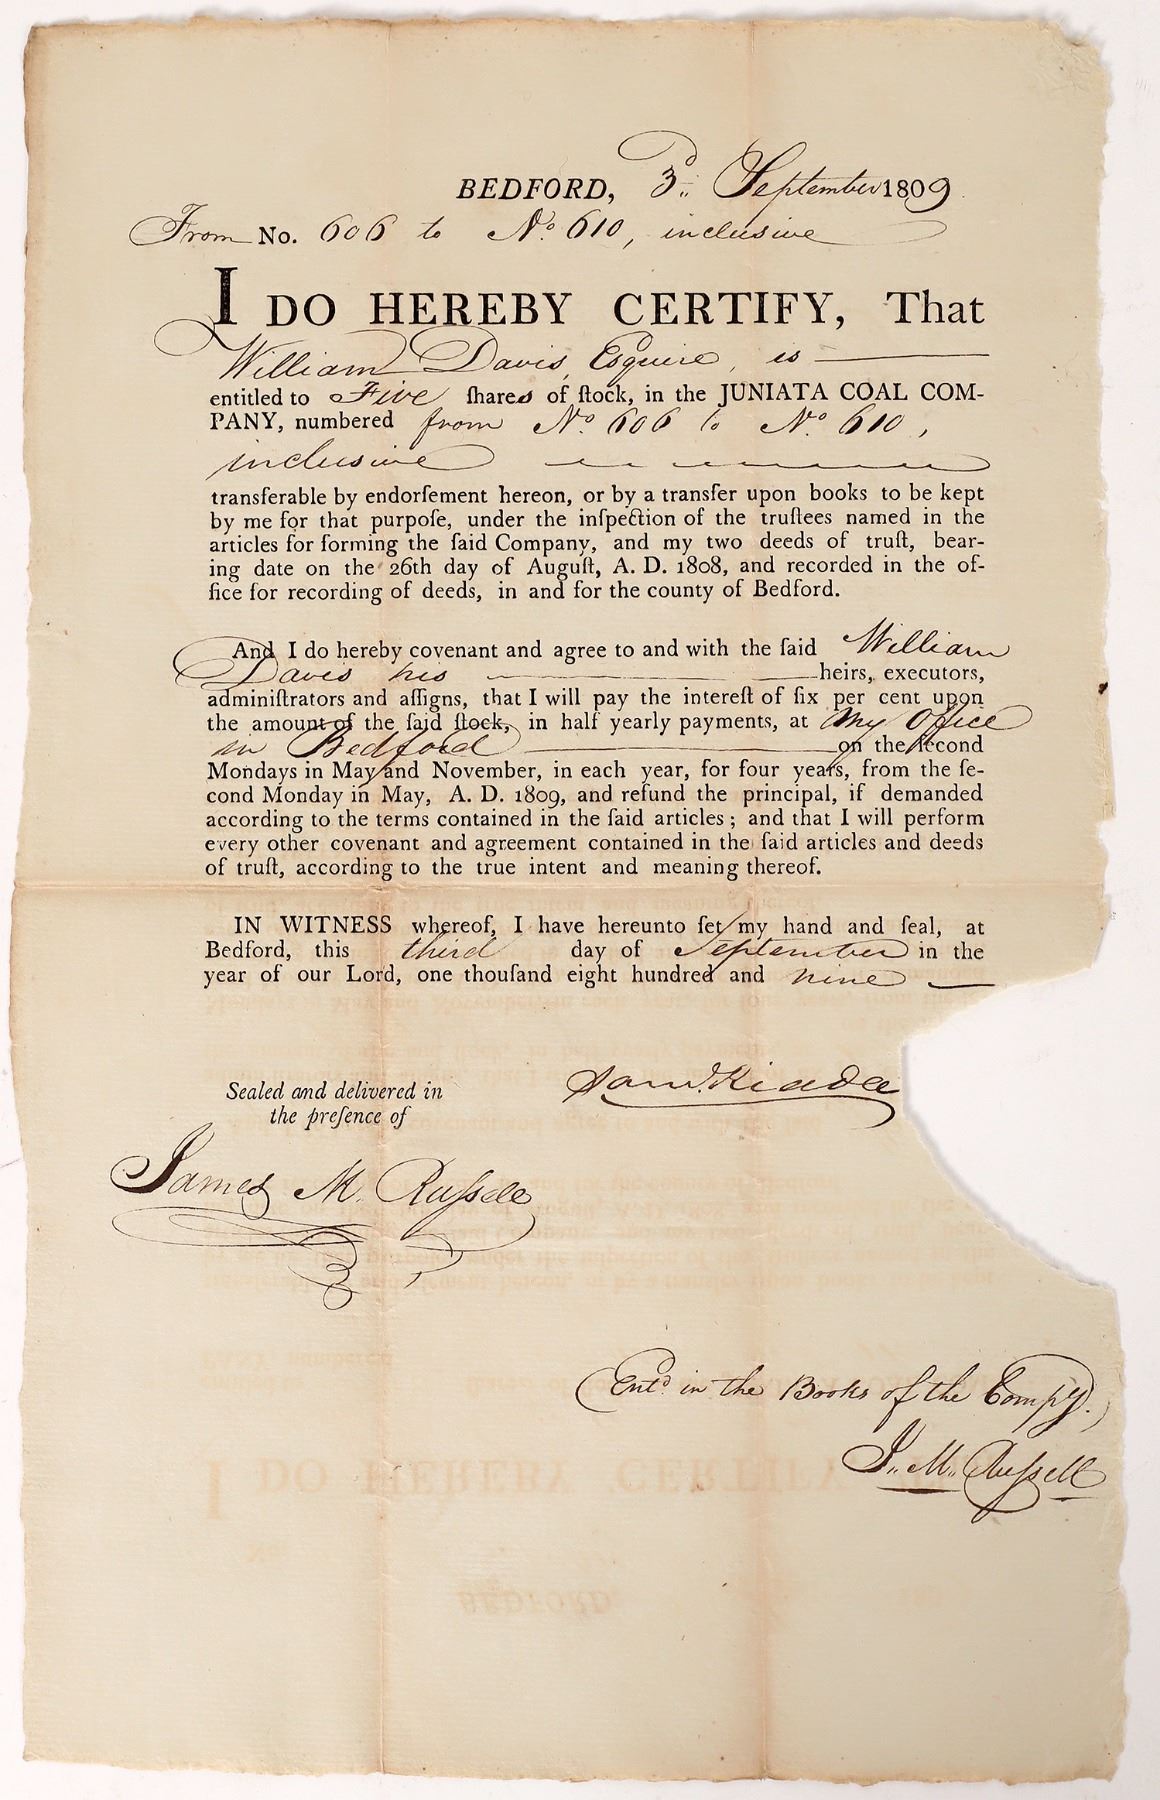 BEDFORD, 3d. September 1809
From No. 606 to No. 610, inclusive
I DO HEREBY CERTIFY, That
William Davis, Esquire, is
entitled to Five ſhares of ſtock, in the JUNIATA COAL COM-
PANY, numbered from No. 606 to No. 610,
inclusive
transferable by endorſement hereon, or by a transfer upon books to be kept
by me for that purpoſe, under the inſpection of the truſtees named in the
articles for forming the ſaid Company, and my two deeds of truſt, bear-
ing date on the 26th day of Auguſt, A. D. 1808, and recorded in the of-
fice for recording of deeds, in and for the county of Bedford.
And I do hereby covenant and agree to and with the ſaid William
Davis his heirs, executors,
adminiſtrators and aſſigns, that I will pay the intereſt of ſix per cent upon
the amount of the ſaid ſtock, in half yearly payments, at My Office
in Bedford on the ſecond
Mondays in May and November, in each year, for four years, from the ſe-
cond Monday in May, A. D. 1809, and refund the principal, if demanded
according to the terms contained in the ſaid articles; and that I will perform
every other covenant and agreement contained in the ſaid articles and deeds
of truſt, according to the true intent and meaning thereof.
IN WITNESS whereof, I have hereunto ſet my hand and ſeal, at
Bedford, this third day of September in the
year of our Lord, one thouſand eight hundred and nine
Sealed and delivered in
the preſence of
James M. Ruſsell
Entd. in the Books of the Compy.
J. M. Ruſsell